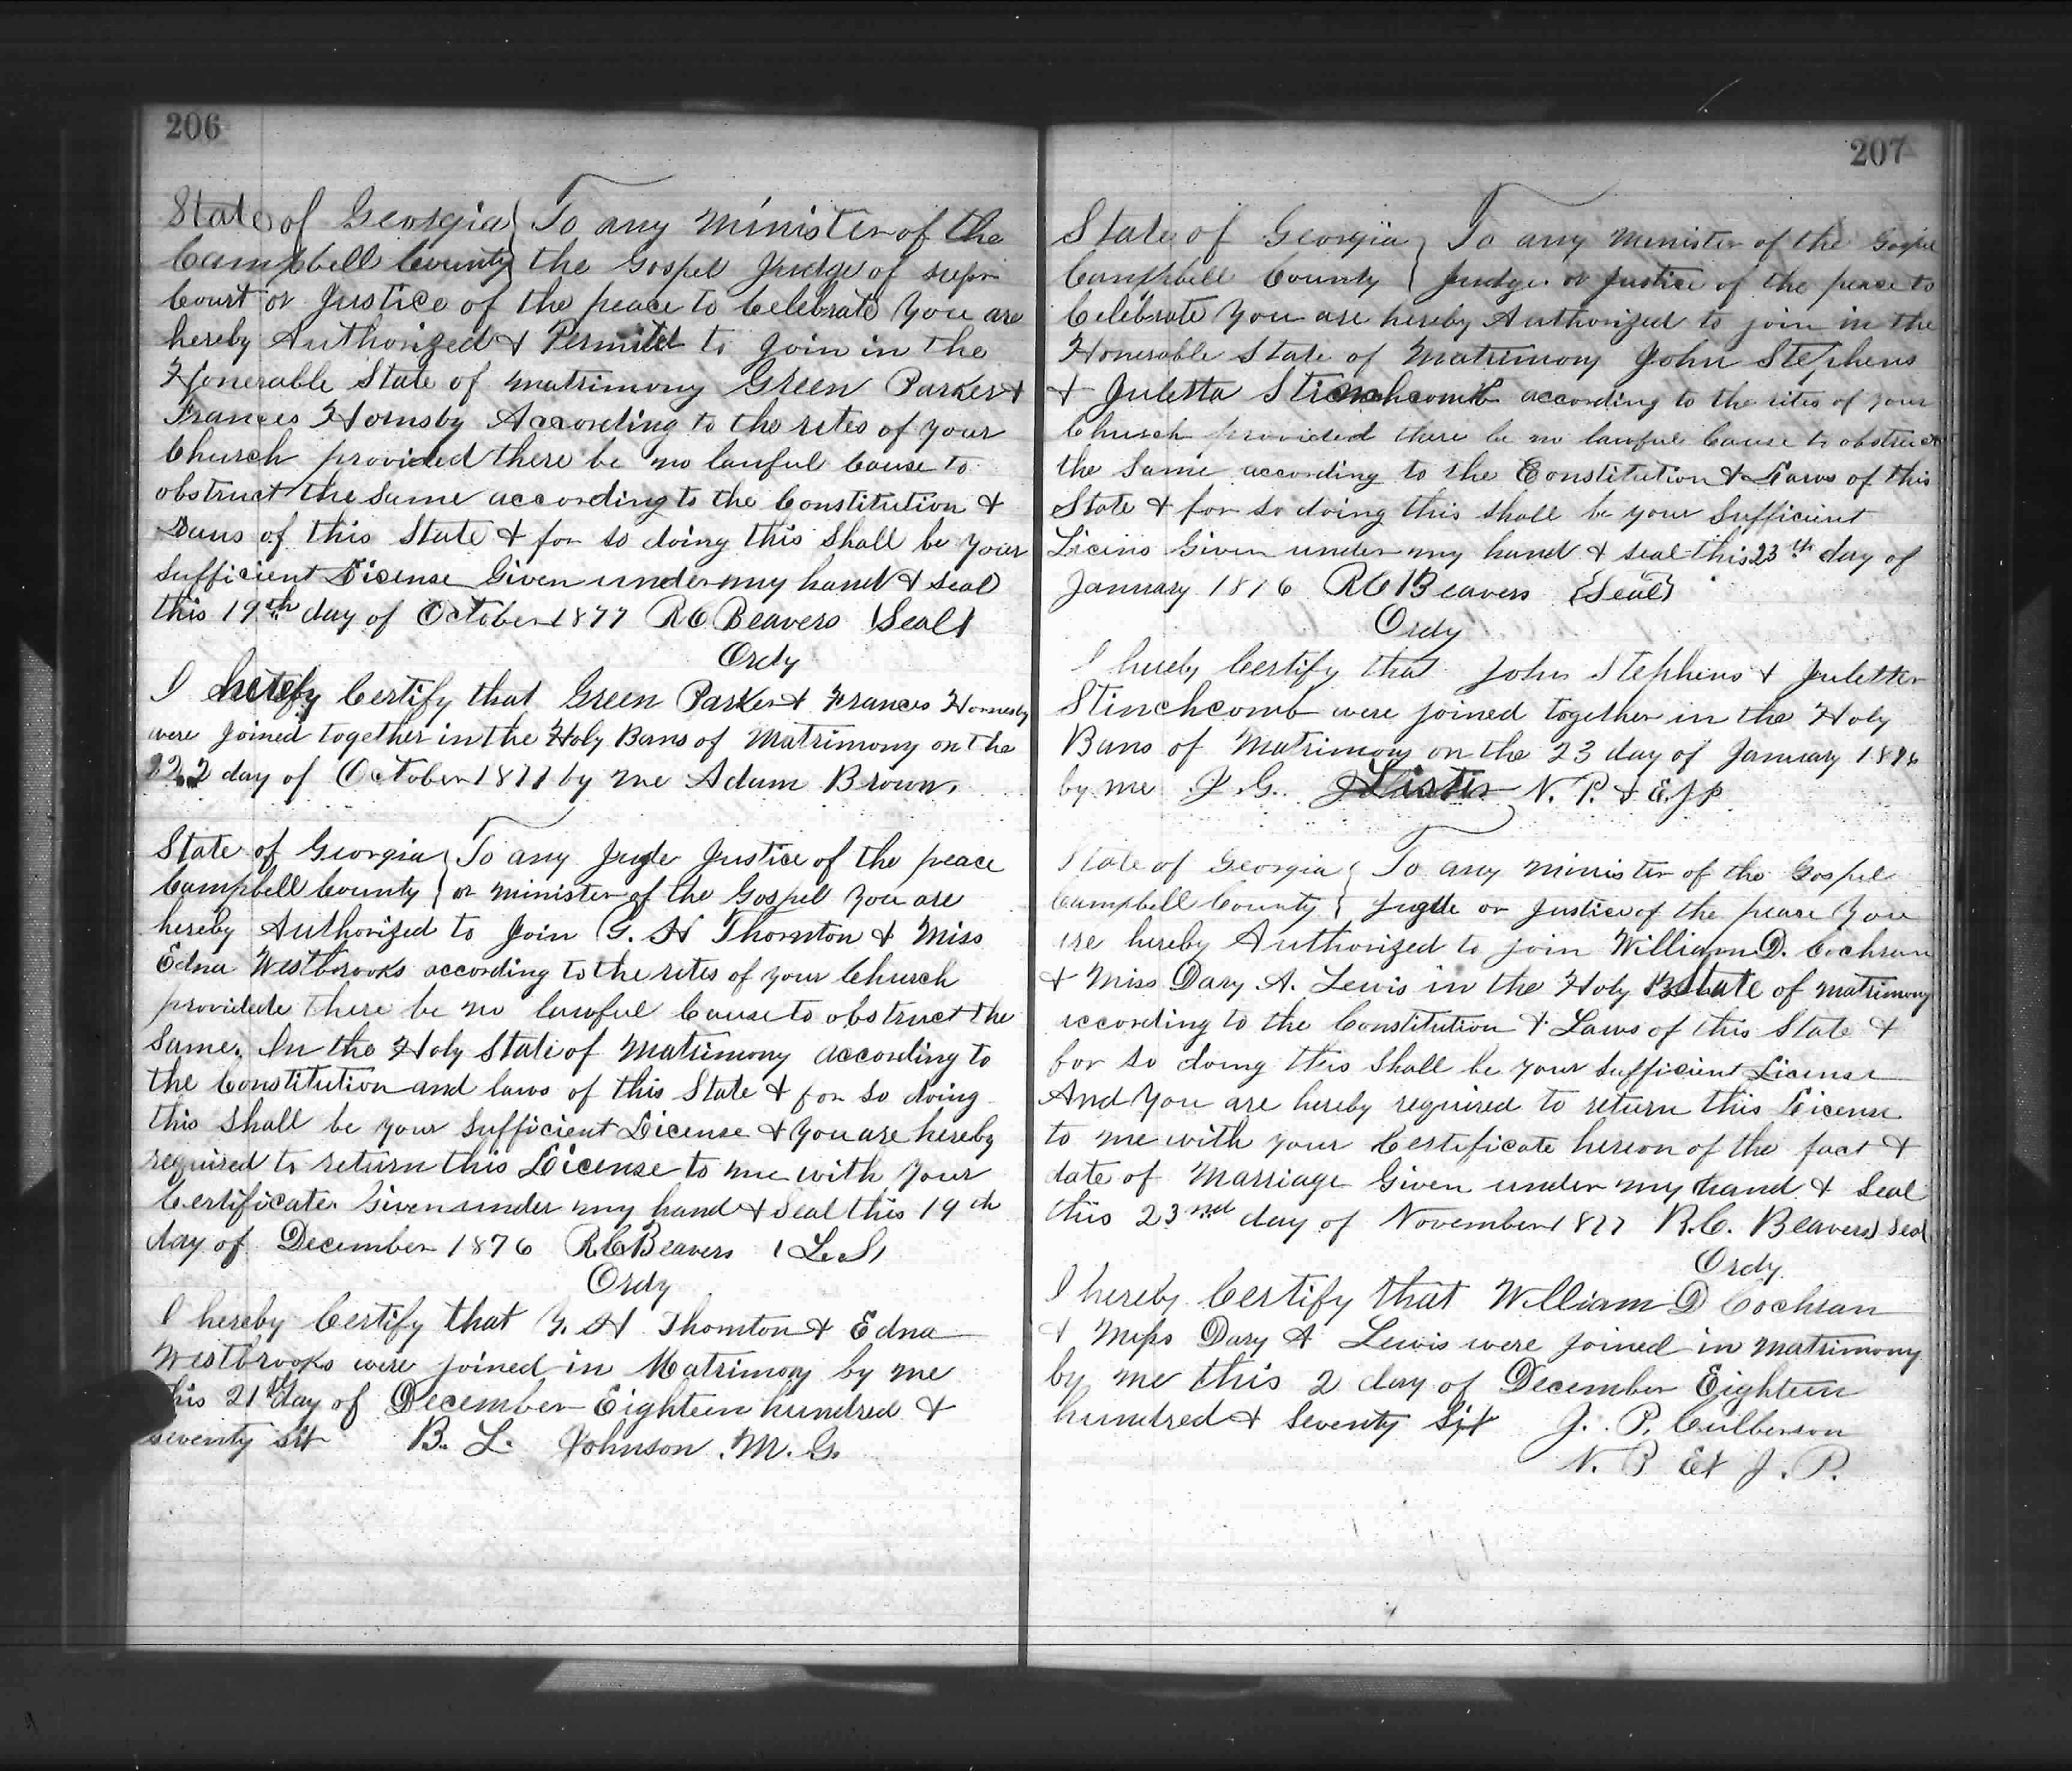 206
State of Georgia } To any Minister of the
Campbell County } the Gospel Judge of supr
Court or Justice of the peace to Celebrate You are
hereby Authorized & Permited to Join in the
Honerable State of matrimony Green Parker &
Frances Hornsby According to the rites of your
Church provided there be no lawful Cause to
obstruct the same according to the Constitution &
Laws of this State & for so doing this Shall be your
Sufficient License Given under my hand & seal
this 19th day of October 1877 R C Beavers (Seal)
Ordy
I hereby Certify that Green Parker & Frances Hornesby
were Joined together in the Holy Bans of Matrimony on the
22 day of October 1877 by me Adam Brown,
State of Georgia } To any Jugde Justice of the peace
Campbell County } or minister of the Gospel You are
hereby Authorized to Join G. H Thornton & Miss
Edna Westbrooks according to the rites of your Church
providede there be no lawful Cause to obstruct the
Same. In the Holy State of Matrimony according to
the Constitution and laws of this State & for so doing
this Shall be your Sufficient License & You are hereby
required to return this License to me with your
Certificate. Given under my hand & Seal this 19th
day of December 1876 R C Beavers (L.S)
Ordy
I hereby Certify that G. H Thornton & Edna
Westbrooks were joined in Matrimony by me
this 21st day of December Eighteen hundred &
seventy six B. L. Johnson M. G.
207
State of Georgia } To any Minister of the Gospel
Campbell County } Judge or Justice of the peace to
Celebrate You are hereby Authorized to join in the
Honerable State of Matrimony John Stephens
& Juletta Stinchcomb according to the rites of your
Church provided there be no lawful Cause to obstruct
the Same according to the Constitution & Laws of this
State & for so doing this Shall be your Sufficient
Licins Given under my hand & seal this 23th day of
January 1876 R C Beavers {Seal}
Ordy
I hereby Certify that John Stephens & Juletter
Stinchcomb were joined together in the Holy
Bans of Matrimony on the 23 day of January 1876
by me J. G. Lister N. P. & E. J P
State of Georgia } To any Minister of the Gospel
Campbell County } Jugde or Justice of the peace You
are hereby Authorized to join William D. Cochran
& Miss Dary A. Lewis in the Holy State of matrimony
according to the Constitution & Laws of this State &
for so doing this Shall be your Sufficient License
And You are hereby required to return this License
to me with your Certificate hereon of the fact &
date of Marriage Given under my hand & Seal
this 23nd day of November 1877 R. C. Beavers} Seal
Ordy
I hereby Certify that William D Cochran
& Miss Dary A Lewis were joined in matrimony
by me this 2 day of December Eighteen
hundred & Seventy Six J. P. Culberson
N. P Ex J. P.